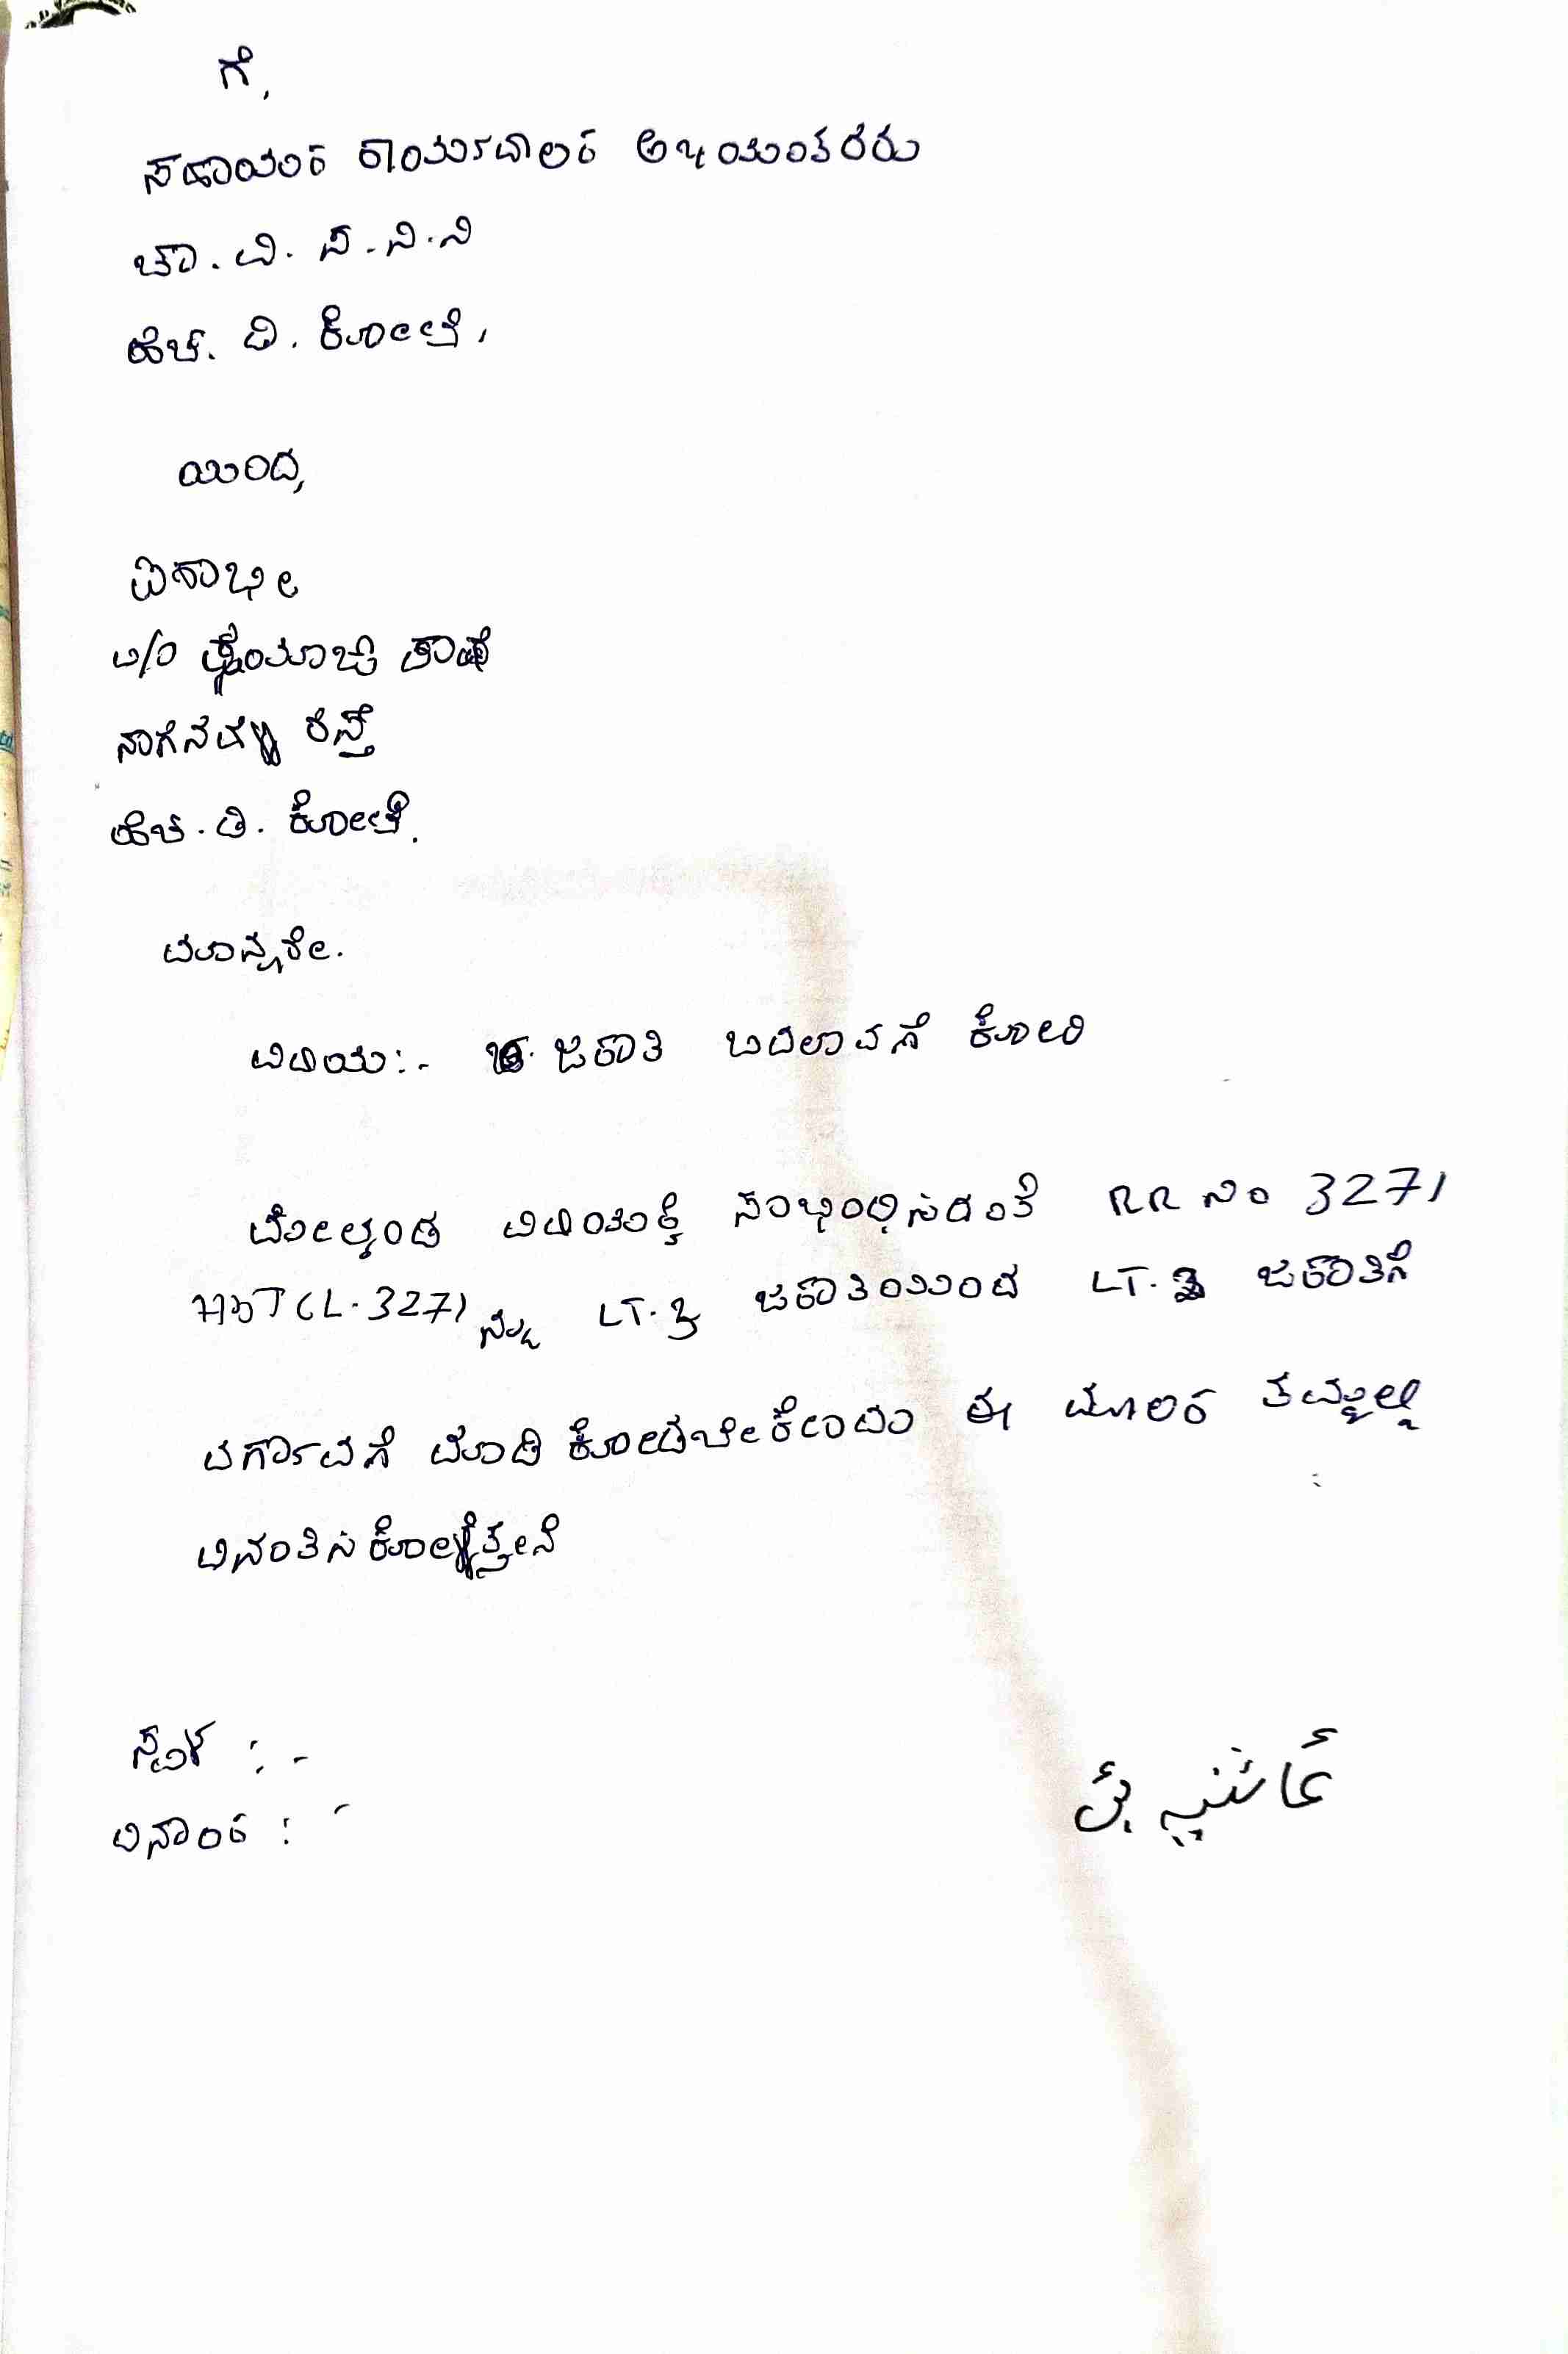 ಗೆ,
ಸಹಾಯಕ ಕಾರ್ಯಪಾಲಕ ಅಭಿಯಂತರರು
ಚಾ. ವಿ. ಸ. ನಿ. ನಿ
ಹೆಚ್. ಡಿ. ಕೋಟೆ,
ಯಿಂದ,
ನಾಗನಹಳ್ಳಿ ರಸ್ತೆ
ಹೆಚ. ಡಿ. ಕೋಟೆ.
ಮಾನ್ಯರೇ.
ವಿಷಯ:- ಜಕಾತಿ ಬದಲಾವಣೆ ಕೋರಿ
ಮೇಲ್ಕಂಡ ವಿಷಯಕ್ಕೆ ಸಂಭಂಧಿಸಿದಂತೆ RR ನಂ 3271
CL-3271 ನ್ನು LT-3 ಜಕಾತಿಯಿಂದ LT- ಜಕಾತಿಗೆ
ವರ್ಗಾವಣೆ ಮಾಡಿ ಕೋಡಬೇಕೇಂದು ಈ ಮೂಲಕ ತಮ್ಮಲ್ಲಿ
ವಿನಂತಿಸಿಕೋಳ್ಳುತ್ತೇನೆ
ಸ್ಥಳ :-
ದಿನಾಂಕ :-